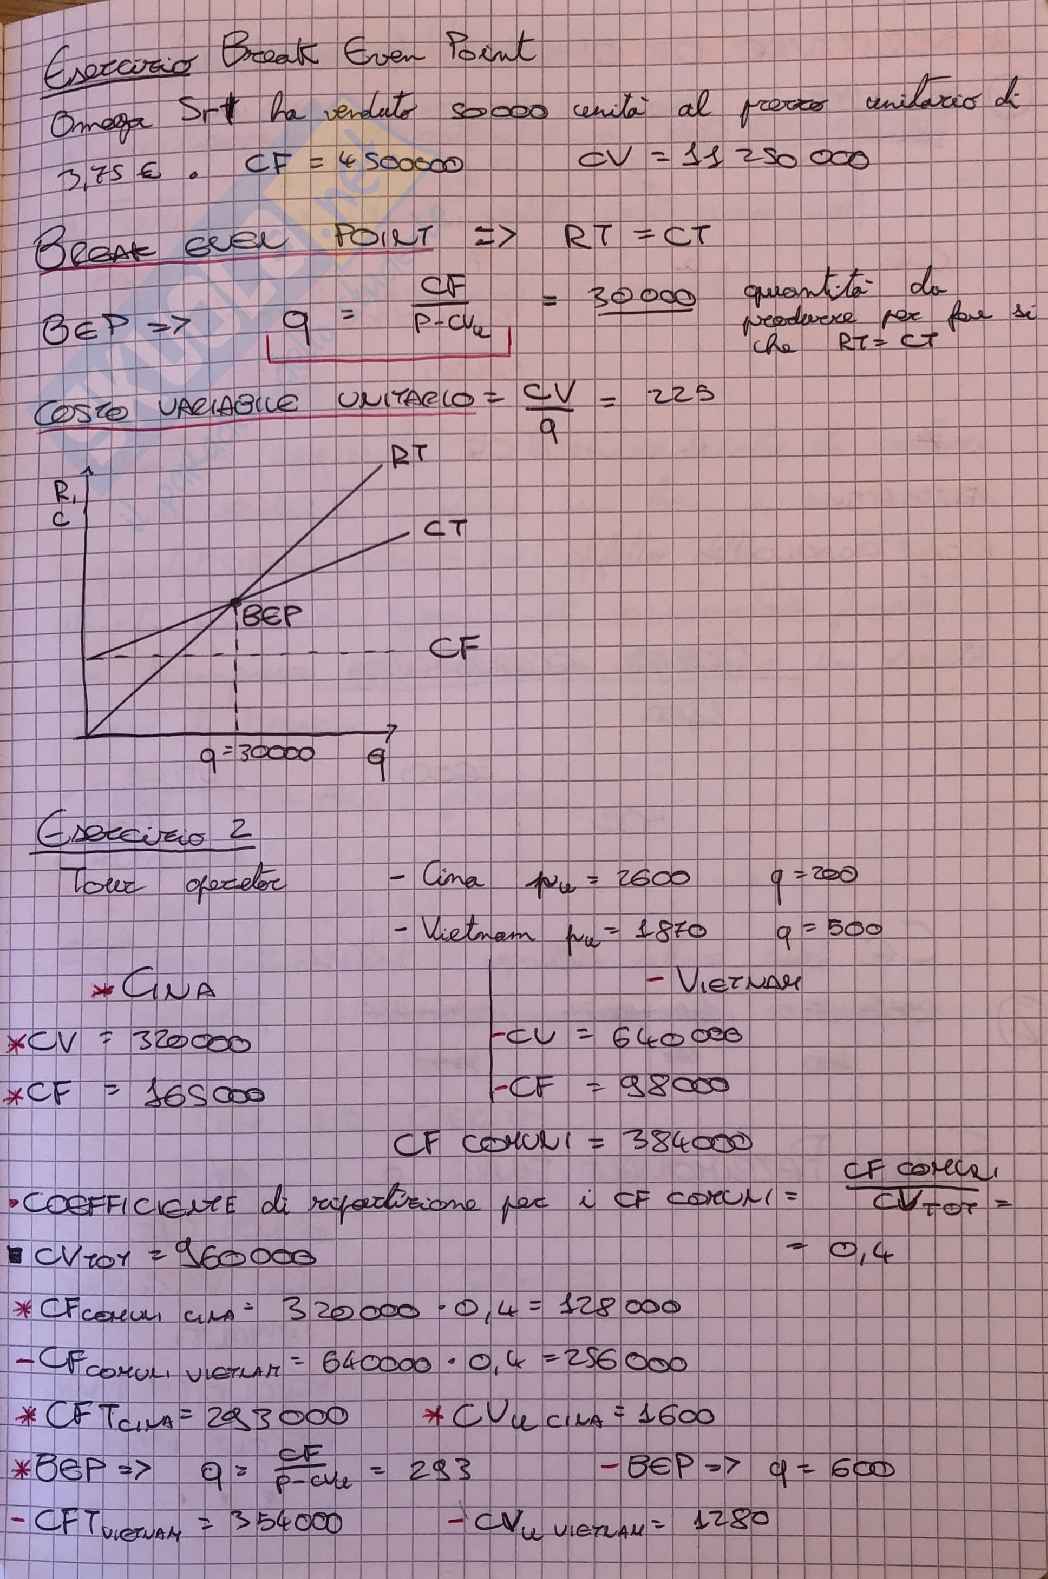 Esercizio Break Even Point
Omega Srl ha venduto 50000 unità al prezzo unitario di
3,75 €. CF = 4500000 CV = 11 250 000
BREAK EVEN POINT => RT = CT
BEP => q = CF / P-CVu = 30000 quantità da
produrre per fare si
che RT = CT
COSTO VARIABILE UNITARIO = CV / q = 225
R,
C
RT
CT
BEP
CF
q=30000 q
Esercizio 2
Tour operator - Cina pu = 2600 q=200
- Vietnam pu = 1870 q = 500
* CINA - VIETNAM
* CV = 320000 - CV = 640000
* CF = 165000 - CF = 98000
CF COMUNI = 384000
• COEFFICIENTE di ripartizione per i CF COMUNI = CF COMUNI / CVTOT =
= 0,4
▪ CVTOT = 960000
* CFCOMUNI CINA = 320000 · 0,4 = 128000
- CFCOMUNI VIETNAM = 640000 · 0,4 = 256000
* CFTCINA = 293000 * CVu CINA = 1600
* BEP => q = CF / P-CVu = 293 - BEP => q = 600
- CFTVIETNAM = 354000 - CVu VIETNAM = 1280